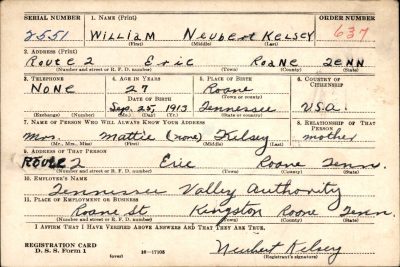 SERIAL NUMBER 1. NAME (Print) ORDER NUMBER
2551 William Neubert Kelsey 637
(First) (Middle) (Last)
2. ADDRESS (Print)
Route 2 Eric Roane Tenn
(Number and street or R. F. D. number) (Town) (County) (State)
3. TELEPHONE 4. AGE IN YEARS 5. PLACE OF BIRTH 6. COUNTRY OF CITIZENSHIP
None 27 Roane
DATE OF BIRTH (Town or county)
Sep. 25, 1913 Tennessee U.S.A.
(Exchange) (Number) (Mo.) (Day) (Yr.) (State or country)
7. NAME OF PERSON WHO WILL ALWAYS KNOW YOUR ADDRESS 8. RELATIONSHIP OF THAT PERSON
Mrs. Mattie (none) Kelsey mother
(Mr., Mrs., Miss) (First) (Middle) (Last)
9. ADDRESS OF THAT PERSON
Route 2 Eric Roane Tenn.
(Number and street or R. F. D. number) (Town) (County) (State)
10. EMPLOYER'S NAME
Tennessee Valley Authority
11. PLACE OF EMPLOYMENT OR BUSINESS
Roane St. Kingston Roane Tenn.
(Number and street or R. F. D. number) (Town) (County) (State)
I AFFIRM THAT I HAVE VERIFIED ABOVE ANSWERS AND THAT THEY ARE TRUE.
REGISTRATION CARD
D. S. S. Form 1 (over) 16-17105 Neubert Kelsey
(Registrant's signature)